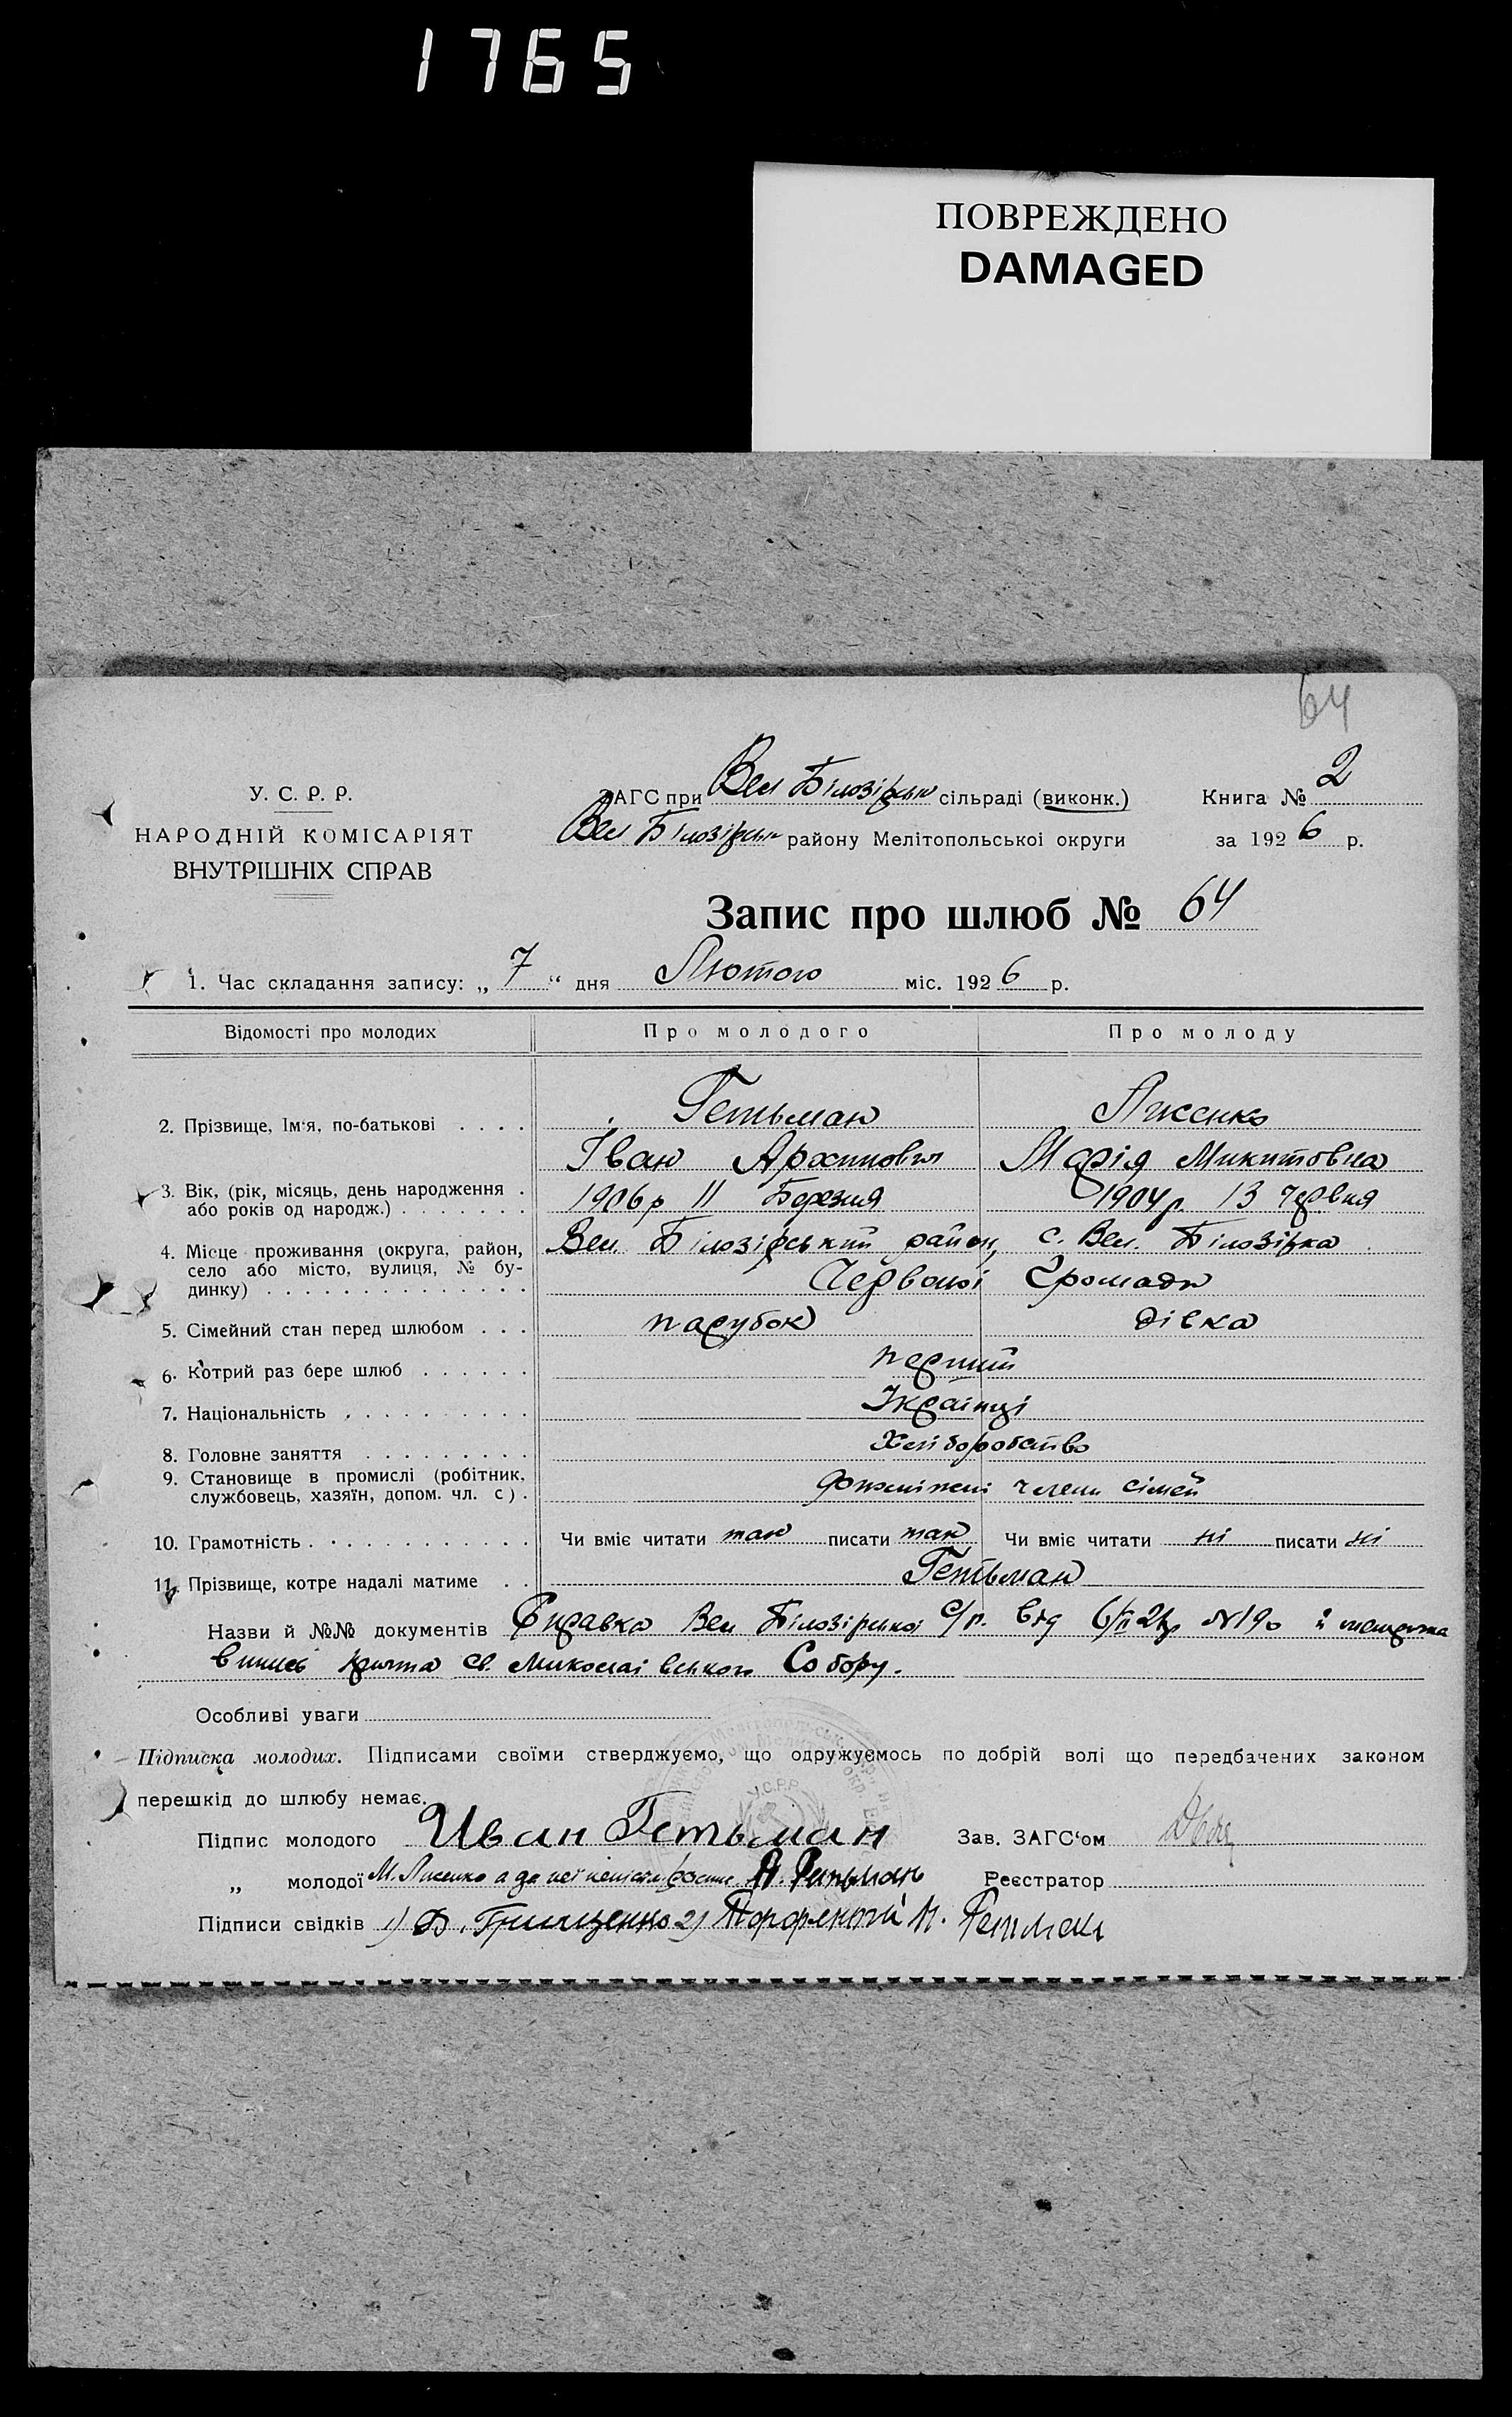 1765
ПОВРЕЖДЕНО
DAMAGED
64
У. С. Р. Р.
НАРОДНІЙ КОМІСАРІЯТ
ВНУТРІШНІХ СПРАВ
ЗАГС при Вел Білозірськ сільраді (виконк.)
Вел Білозірськ району Мелітопольскоі округи
Книга № 2
за 1926 р.
Запис про шлюб № 64
1. Час складання запису: „ 7 “ дня Лютого міс. 1926 р.
Відомості про молодих Про молодого Про молоду
2. Прізвище, Ім'я, по-батькові . . . . Гетьман Лисенко
Іван Архипович Марія Микитовна
3. Вік, (рік, місяць, день народження . або років од народж.) . . . . . . . 1906 р 11 Березня 1904 р. 13 червня
4. Місце проживання (округа, район, село або місто, вулиця, № будинку) . . . . . . . . . . . . . . Вел. Білозірський район, с. Вел. Білозірка
Червоної Громади
5. Сімейний стан перед шлюбом . . . парубок дівка
6. Котрий раз бере шлюб . . . . . . перший
7. Національність . . . . . . . . . . Українці
8. Головне заняття . . . . . . . . . Хліборобство
9. Становище в промислі (робітник, службовець, хазяїн, допом. чл. с) . члени сімей
10. Грамотність . . . . . . . . . . . . Чи вміє читати так писати так Чи вміє читати ні писати ні
11. Прізвище, котре надалі матиме . . Гетьман
Назви й №№ документів Справка Вел Білозірської с/р. від 6/II 26р №190
Св. Миколаівського Собору.
Особливі уваги
Підписка молодих. Підписами своїми стверджуємо, що одружуємось по добрій волі що передбачених законом
перешкід до шлюбу немає.
У.С.Р.Р.
Підпис молодого Иван Гетьман Зав. ЗАГС‘ом
„ молодої М. Лисенко а за неї Гетьман Реєстратор
Підписи свідків 1) Д. Грищенко 2) Гетман